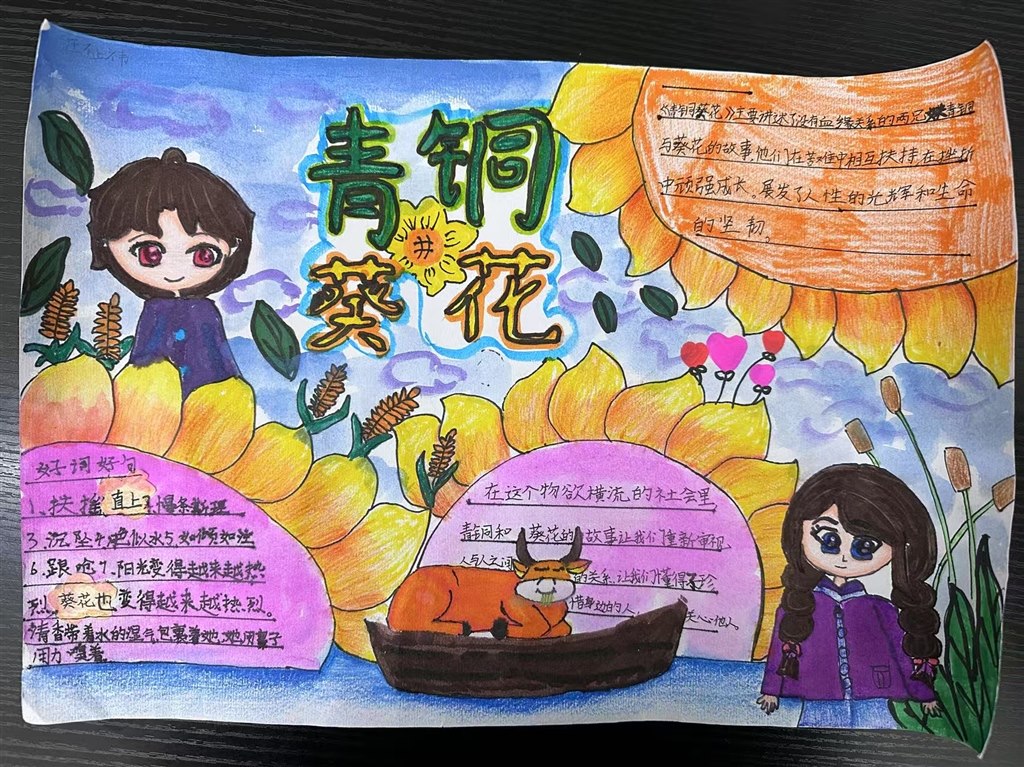 青铜
葵花
《青铜葵花》主要讲述了没有血缘关系的两兄妹青铜
与葵花的故事他们在苦难中相互扶持在挫折
中顽强成长。展发了人性的光辉和生命
的坚韧。
好词好句
1、扶摇直上 2、慢条斯理
3、沉坠 4、似水 5、如倾如注
6、踉跄 7、阳光变得越来越热
烈。葵花也变得越来越热烈。
清香带着水的湿气包裹着她,她用鼻子
用力嗅着
在这个物欲横流的社会里
青铜和葵花的故事让我们重新审视
人与人之间的关系,让我们懂得珍
惜身边的人 关心他人